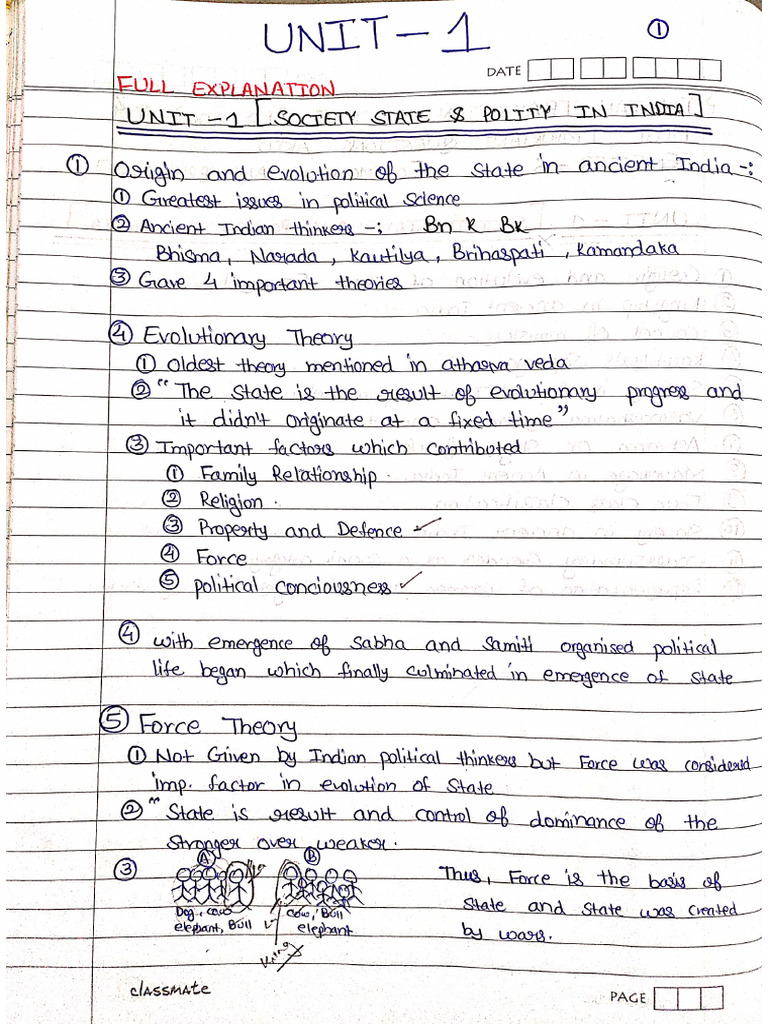 UNIT - 1
①
DATE
FULL EXPLANATION
UNIT - 1 [SOCIETY STATE & POLITY IN INDIA]
① Origin and evolution of the State in ancient India -:
① Greatest issues in political Science
② Ancient Indian thinkers -: Bn K Bk
Bhisma, Narada, Kautilya, Brihaspati, Kamandaka
③ Gave 4 important theories
④ Evolutionary Theory
① Oldest theory mentioned in atharva veda
② "The State is the result of evolutionary progress and
it didn't originate at a fixed time"
③ Important factors which contributed
① Family Relationship.
② Religion.
③ Property and Defence ✓
④ Force
⑤ political conciousness ✓
④ with emergence of Sabha and Samiti organised political
life began which finally culminated in emergence of State
⑤ Force Theory
① Not Given by Indian political thinkers but Force was considered
imp. factor in evolution of State
② "State is result and control of dominance of the
Stronger over weaker.
③ A B Thus, Force is the basis of
Dog, cow cow, Bull State and State was created
elephant, Bull elephant by wars.
King
classmate
PAGE